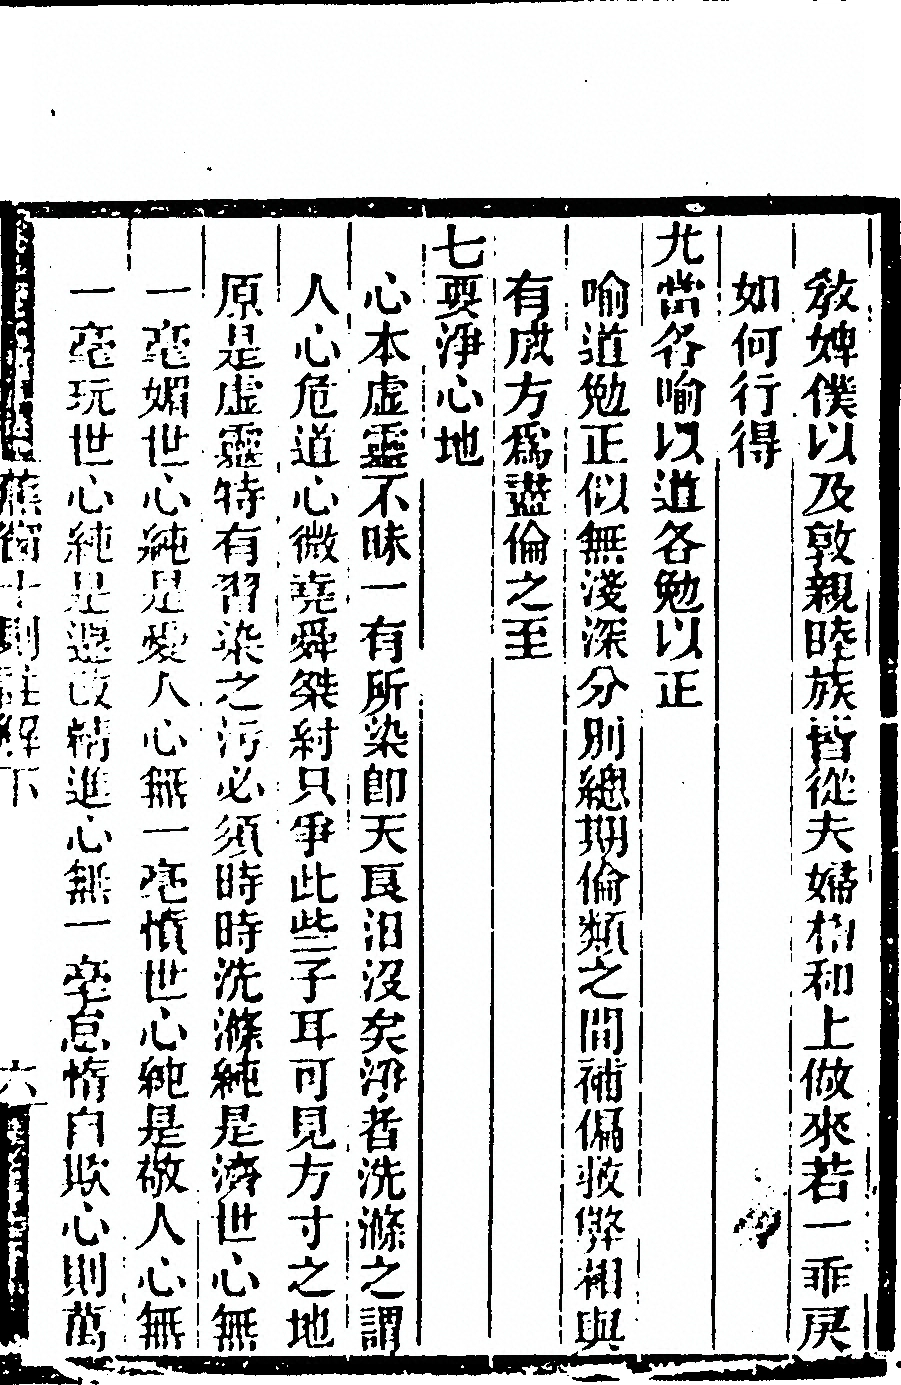 教婢僕以及敦親睦族皆從夫婦相和上做來若一乖戾
如何行得
尤當各喻以道各勉以正
喻道勉正似無淺深分別總期倫類之間補偏救弊相與
有成方爲盡倫之至
七要淨心地
心本虛靈不昧一有所染卽天良汨沒矣淨者洗滌之謂
人心危道心微堯舜桀紂只爭此些子耳可見方寸之地
原是虛靈特有習染之污必須時時洗滌純是濟世心無
一毫媚世心純是愛人心無一毫憤世心純是敬人心無
一毫玩世心純是遷改精進心無一毫怠惰自欺心則萬
蕉窗十則註解下
六